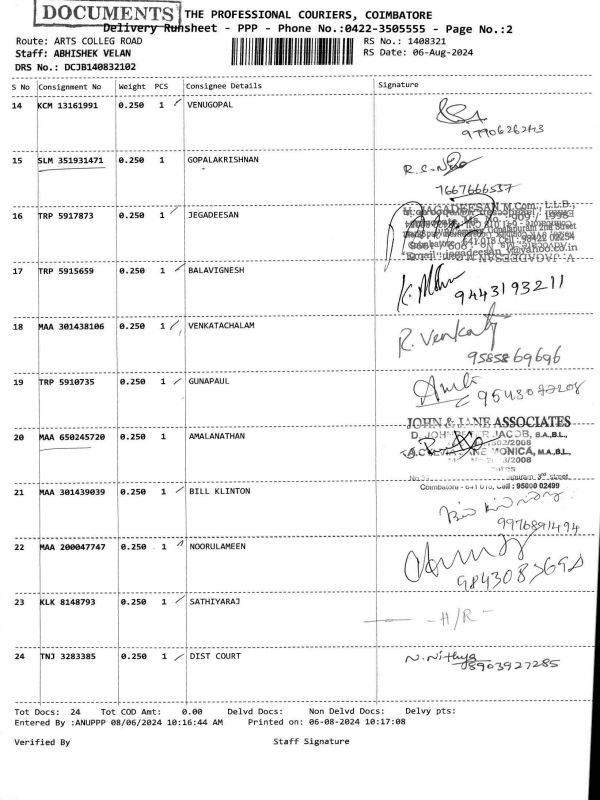 DOCUMENTS THE PROFESSIONAL COURIERS, COIMBATORE
Delivery Runsheet - PPP - Phone No.:0422-3505555 - Page No.:2
Route: ARTS COLLEG ROAD RS No.: 1408321
Staff: ABHISHEK VELAN RS Date: 06-Aug-2024
DRS No.: DCJB140832102
S No Consignment No Weight PCS Consignee Details Signature
14 KCM 13161991 0.250 1 VENUGOPAL
15 SLM 351931471 0.250 1 GOPALAKRISHNAN
7667666537
16 TRP 5917873 0.250 1 JEGADEESAN
M. JAGADEESAN M.Com., L.L.B.,
17 TRP 5915659 0.250 1 BALAVIGNESH
9443193211
18 MAA 301438106 0.250 1 VENKATACHALAM
R. Venkat
9585869696
19 TRP 5910735 0.250 1 GUNAPAUL
JOHN & JANE ASSOCIATES
20 MAA 650245720 0.250 1 AMALANATHAN
JACOB, B.A.,B.L.,
MONICA, M.A.,B.L.,
Coimbatore - 641 018, Cell : 95000 02499
21 MAA 301439039 0.250 1 BILL KLINTON
9976891494
22 MAA 200047747 0.250 1 NOORULAMEEN
23 KLK 8148793 0.250 1 SATHIYARAJ
- H/R -
24 TNJ 3283385 0.250 1 DIST COURT
N. Nithya
8903927285
Tot Docs: 24 Tot COD Amt: 0.00 Delvd Docs: Non Delvd Docs: Delvy pts:
Entered By :ANUPPP 08/06/2024 10:16:44 AM Printed on: 06-08-2024 10:17:08
Verified By Staff Signature